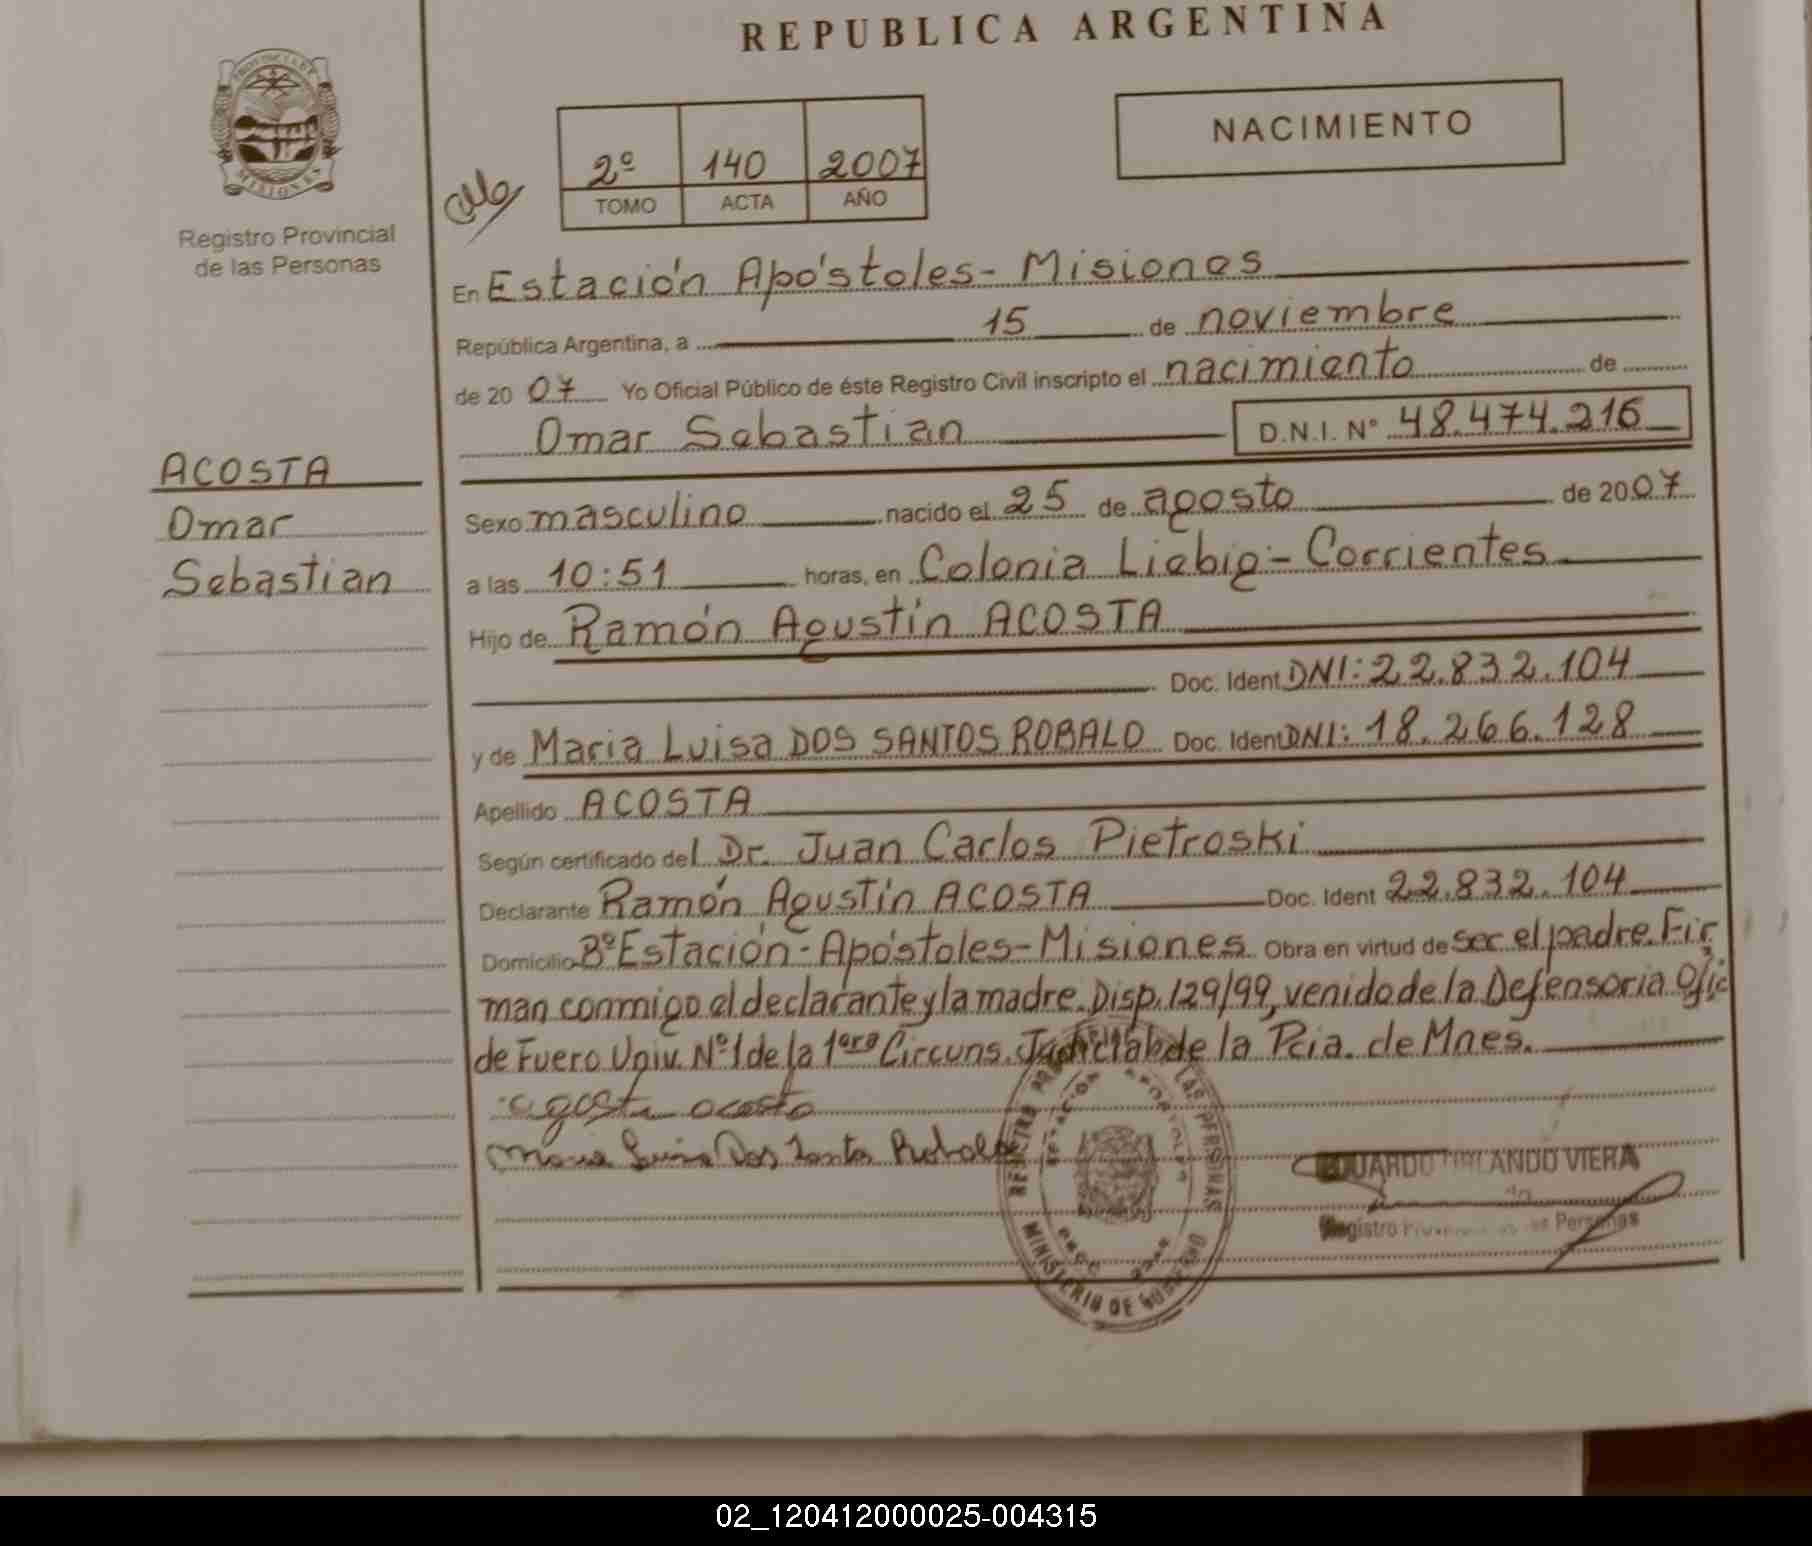 REPUBLICA ARGENTINA
PROVINCIA DE
MISIONES
Registro Provincial
de las Personas
NACIMIENTO
2º 140 2007
TOMO ACTA AÑO
En Estación Apóstoles - Misiones
República Argentina, a 15 de noviembre
de 2007 Yo Oficial Público de éste Registro Civil inscripto el nacimiento de
Omar Sebastian D.N.I. Nº 48.474.216
ACOSTA
Omar
Sebastian
Sexo masculino nacido el 25 de agosto de 2007
a las 10:51 horas, en Colonia Liebig - Corrientes
Hijo de Ramón Agustín ACOSTA
Doc. Ident DNI: 22.832.104
y de Maria Luisa DOS SANTOS ROBALO Doc. Ident DNI: 18.266.128
Apellido ACOSTA
Según certificado del Dr. Juan Carlos Pietroski
Declarante Ramón Agustín ACOSTA Doc. Ident 22.832.104
Domicilio Bº Estación - Apóstoles - Misiones Obra en virtud de ser el padre. Fir
man conmigo el declarante y la madre. Disp. 129/99, venido de la Defensoria Ofic
de Fuero Univ. Nº 1 de la 1era Circuns. Judicial de la Pcia. de Mnes.
agosta acosta
Maria Luisa Dos Santos Robalo
EDUARDO ORLANDO VIERA
Registro Personas
MINISTERIO DE GOBIERNO
02_120412000025-004315